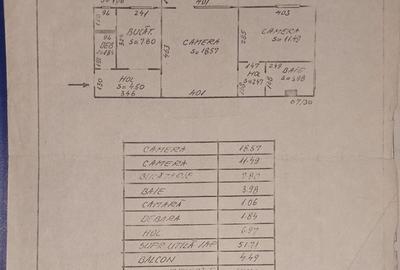 96
241
401
403
BUCĂT.
S=7.80
CAMERA
S=18.57
CAMERA
S=11.49
96
DEB.
463
285
HOL
S=4.50
346
130
401
147
HOL
S=2.47
249
BAIE
S=3.98
CAMERA 18.57
CAMERA 11.49
BUCĂTĂRIE 7.80
BAIE 3.98
CAMARĂ 1.06
DEBARA 1.84
HOL 6.97
SUPR. UTILĂ /AP 51.71
BALCON 4.49